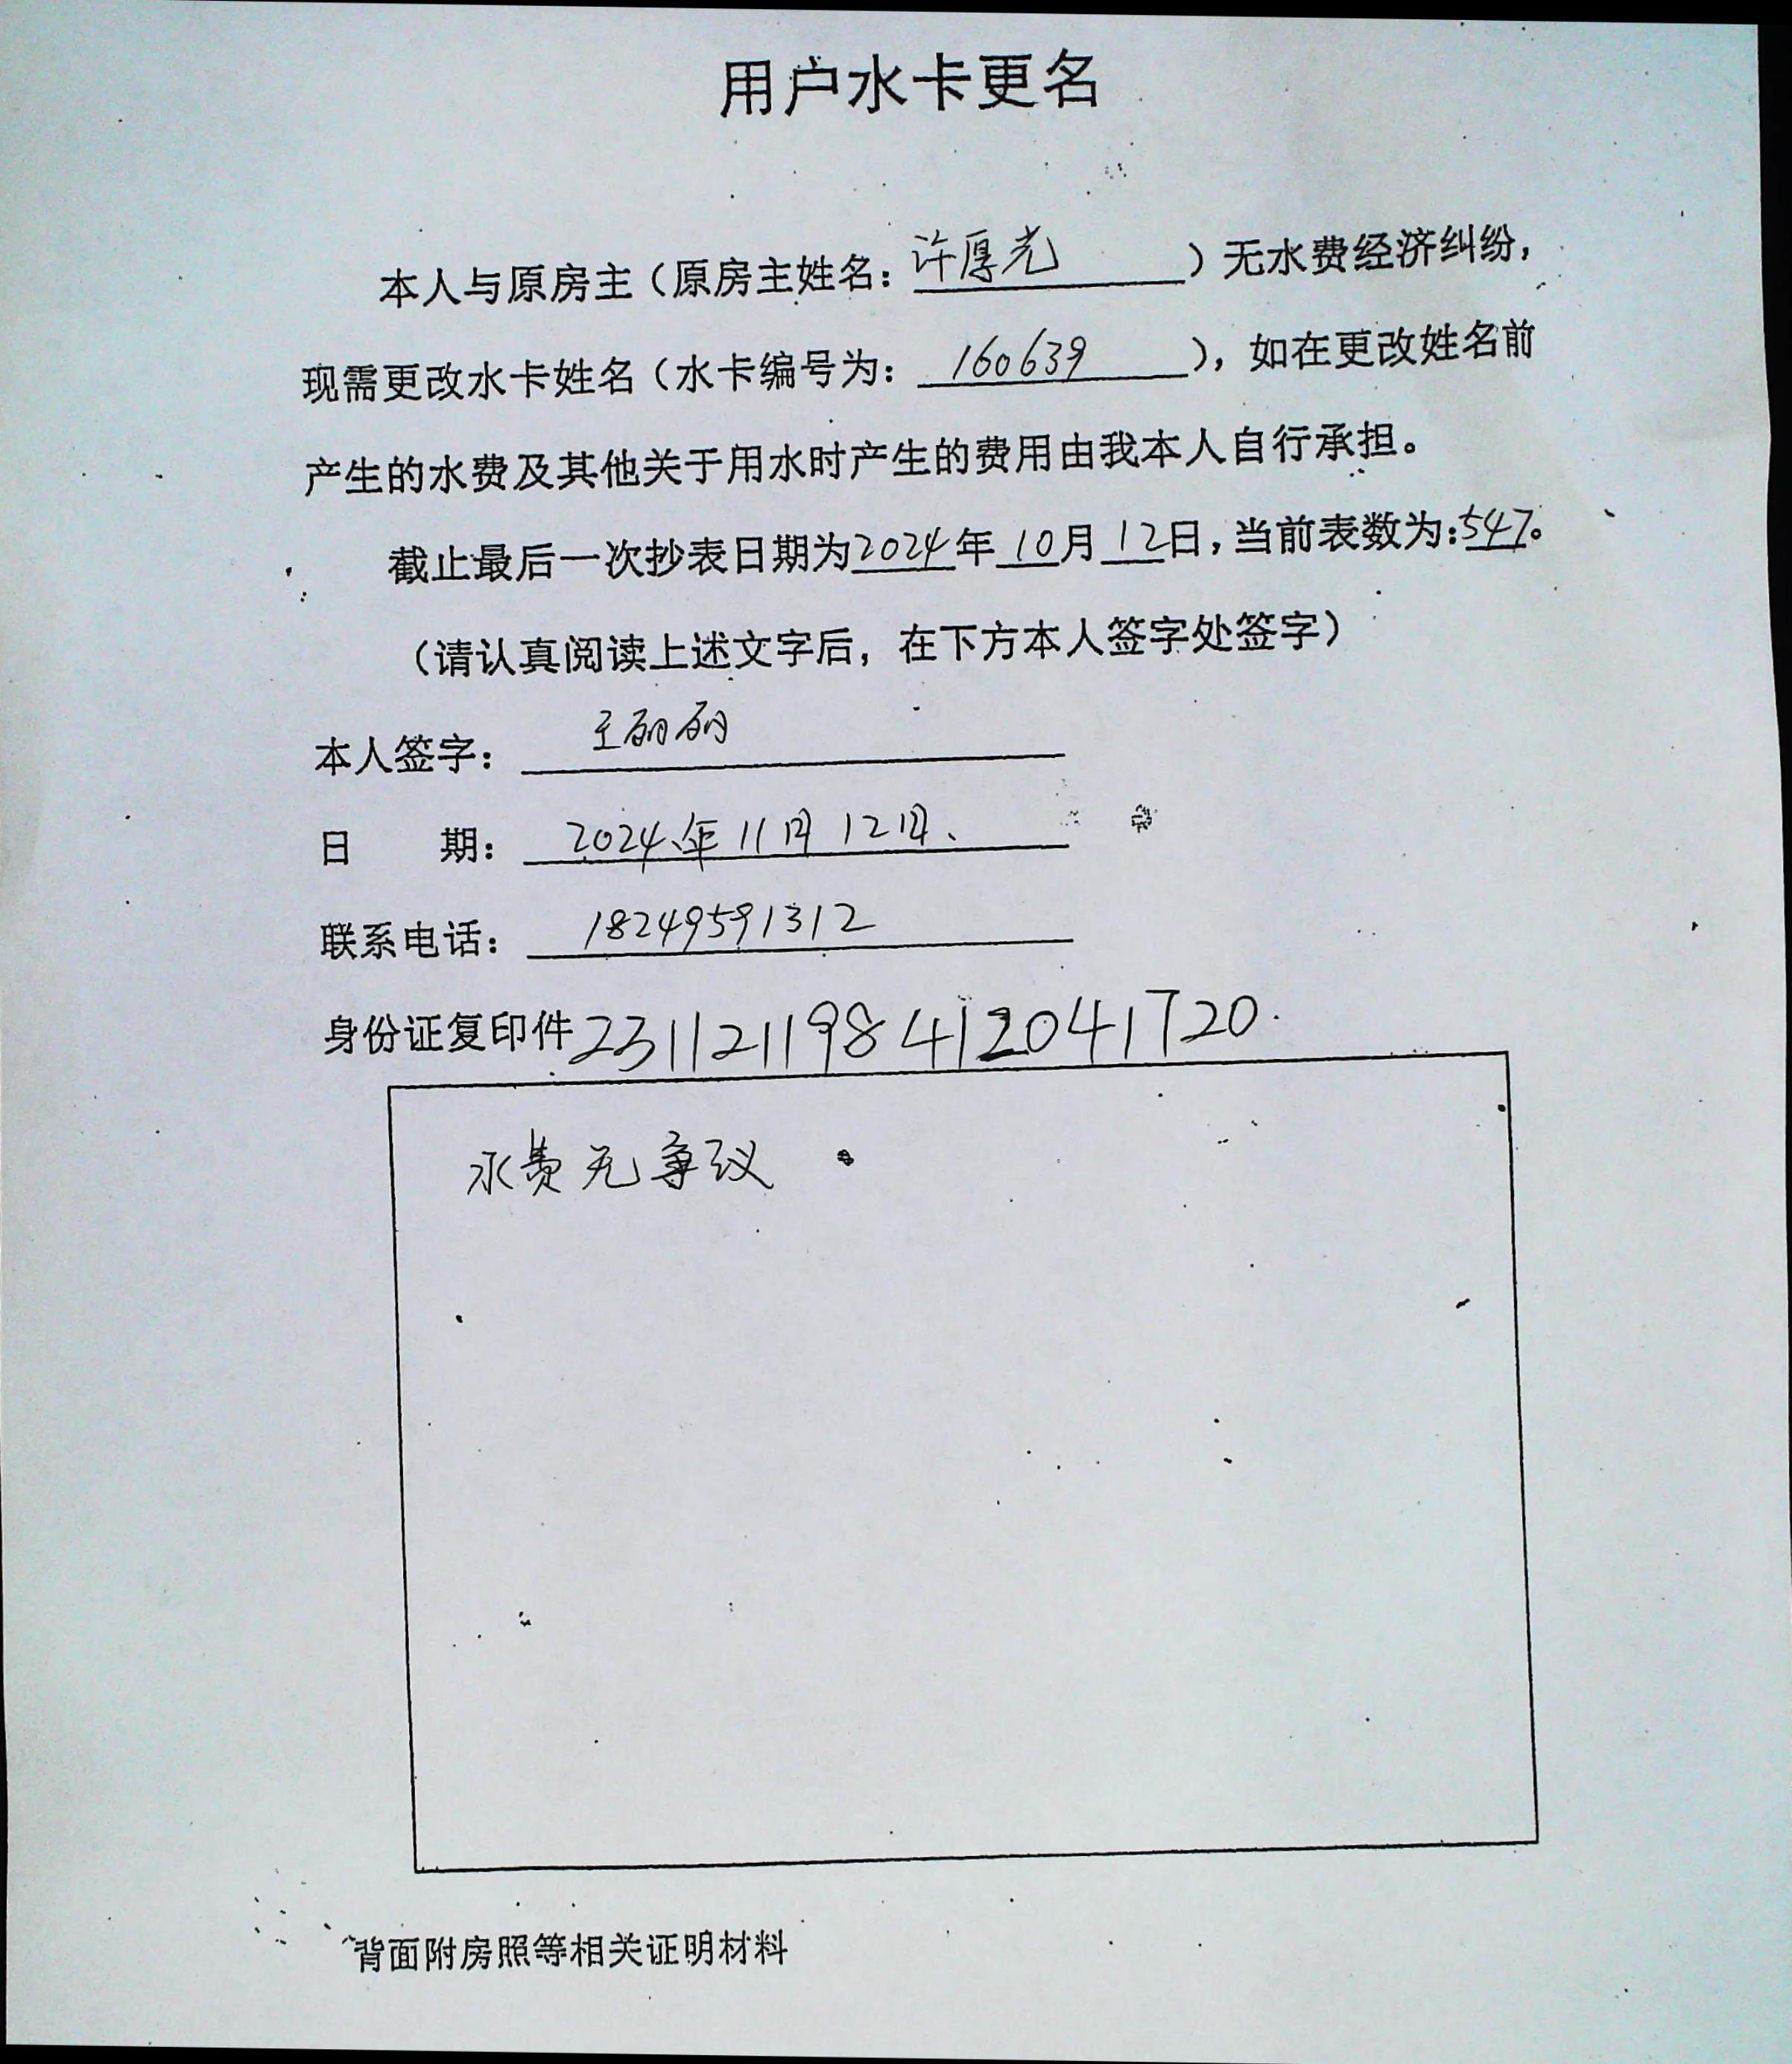 用户水卡更名
本人与原房主（原房主姓名：许厚光）无水费经济纠纷，
现需更改水卡姓名（水卡编号为：160639），如在更改姓名前
产生的水费及其他关于用水时产生的费用由我本人自行承担。
截止最后一次抄表日期为2024年10月12日，当前表数为：547。
（请认真阅读上述文字后，在下方本人签字处签字）
本人签字：王丽丽
日 期：2024年11月12日、
联系电话：18249591312
身份证复印件231121198412041720.
水费无争议
背面附房照等相关证明材料